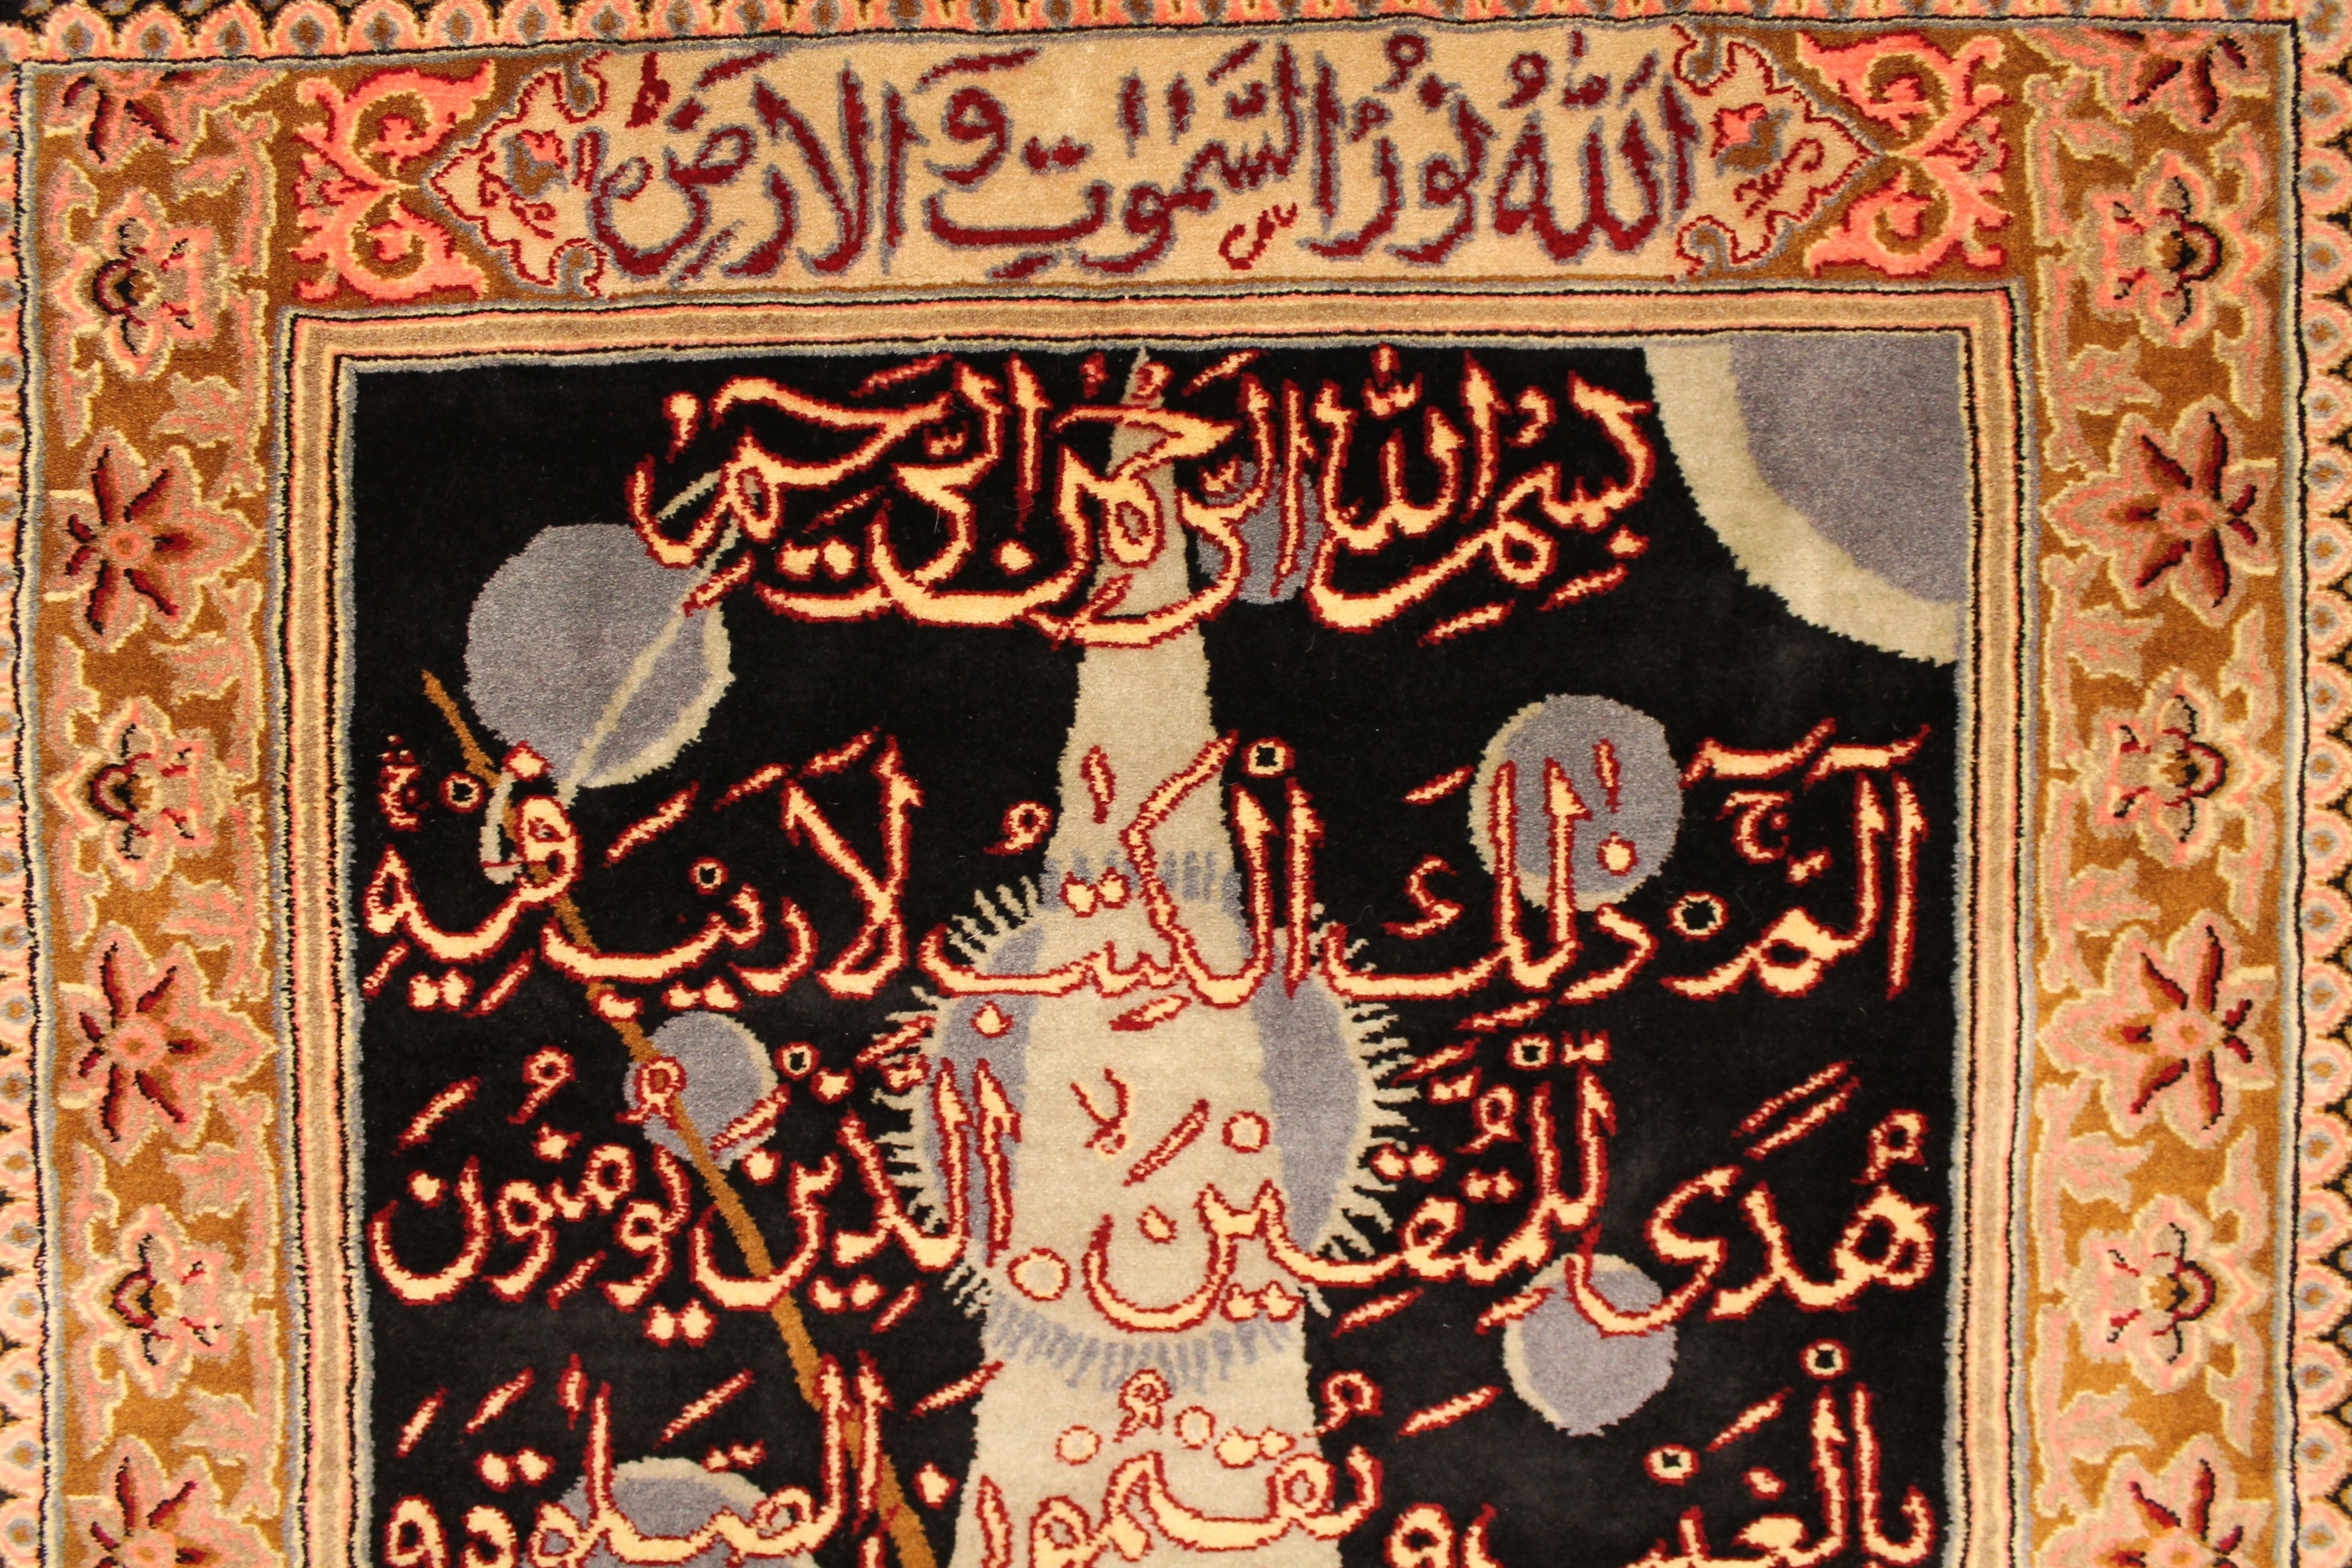 اَللّٰهُ نُوْرُ السَّمٰوٰتِ وَ الْاَرْضِ
بِسْمِ اللّٰهِ الرَّحْمٰنِ الرَّحِيْمِ
الٓمّٓ ج ذٰلِكَ الْكِتٰبُ لَا رَيْبَ فِيْهِ ج
هُدًى لِّلْمُتَّقِيْنَ لا الَّذِيْنَ يُؤْمِنُوْنَ
بِالْغَيْبِ وَ يُقِيْمُوْنَ الصَّلٰوةَ وَ